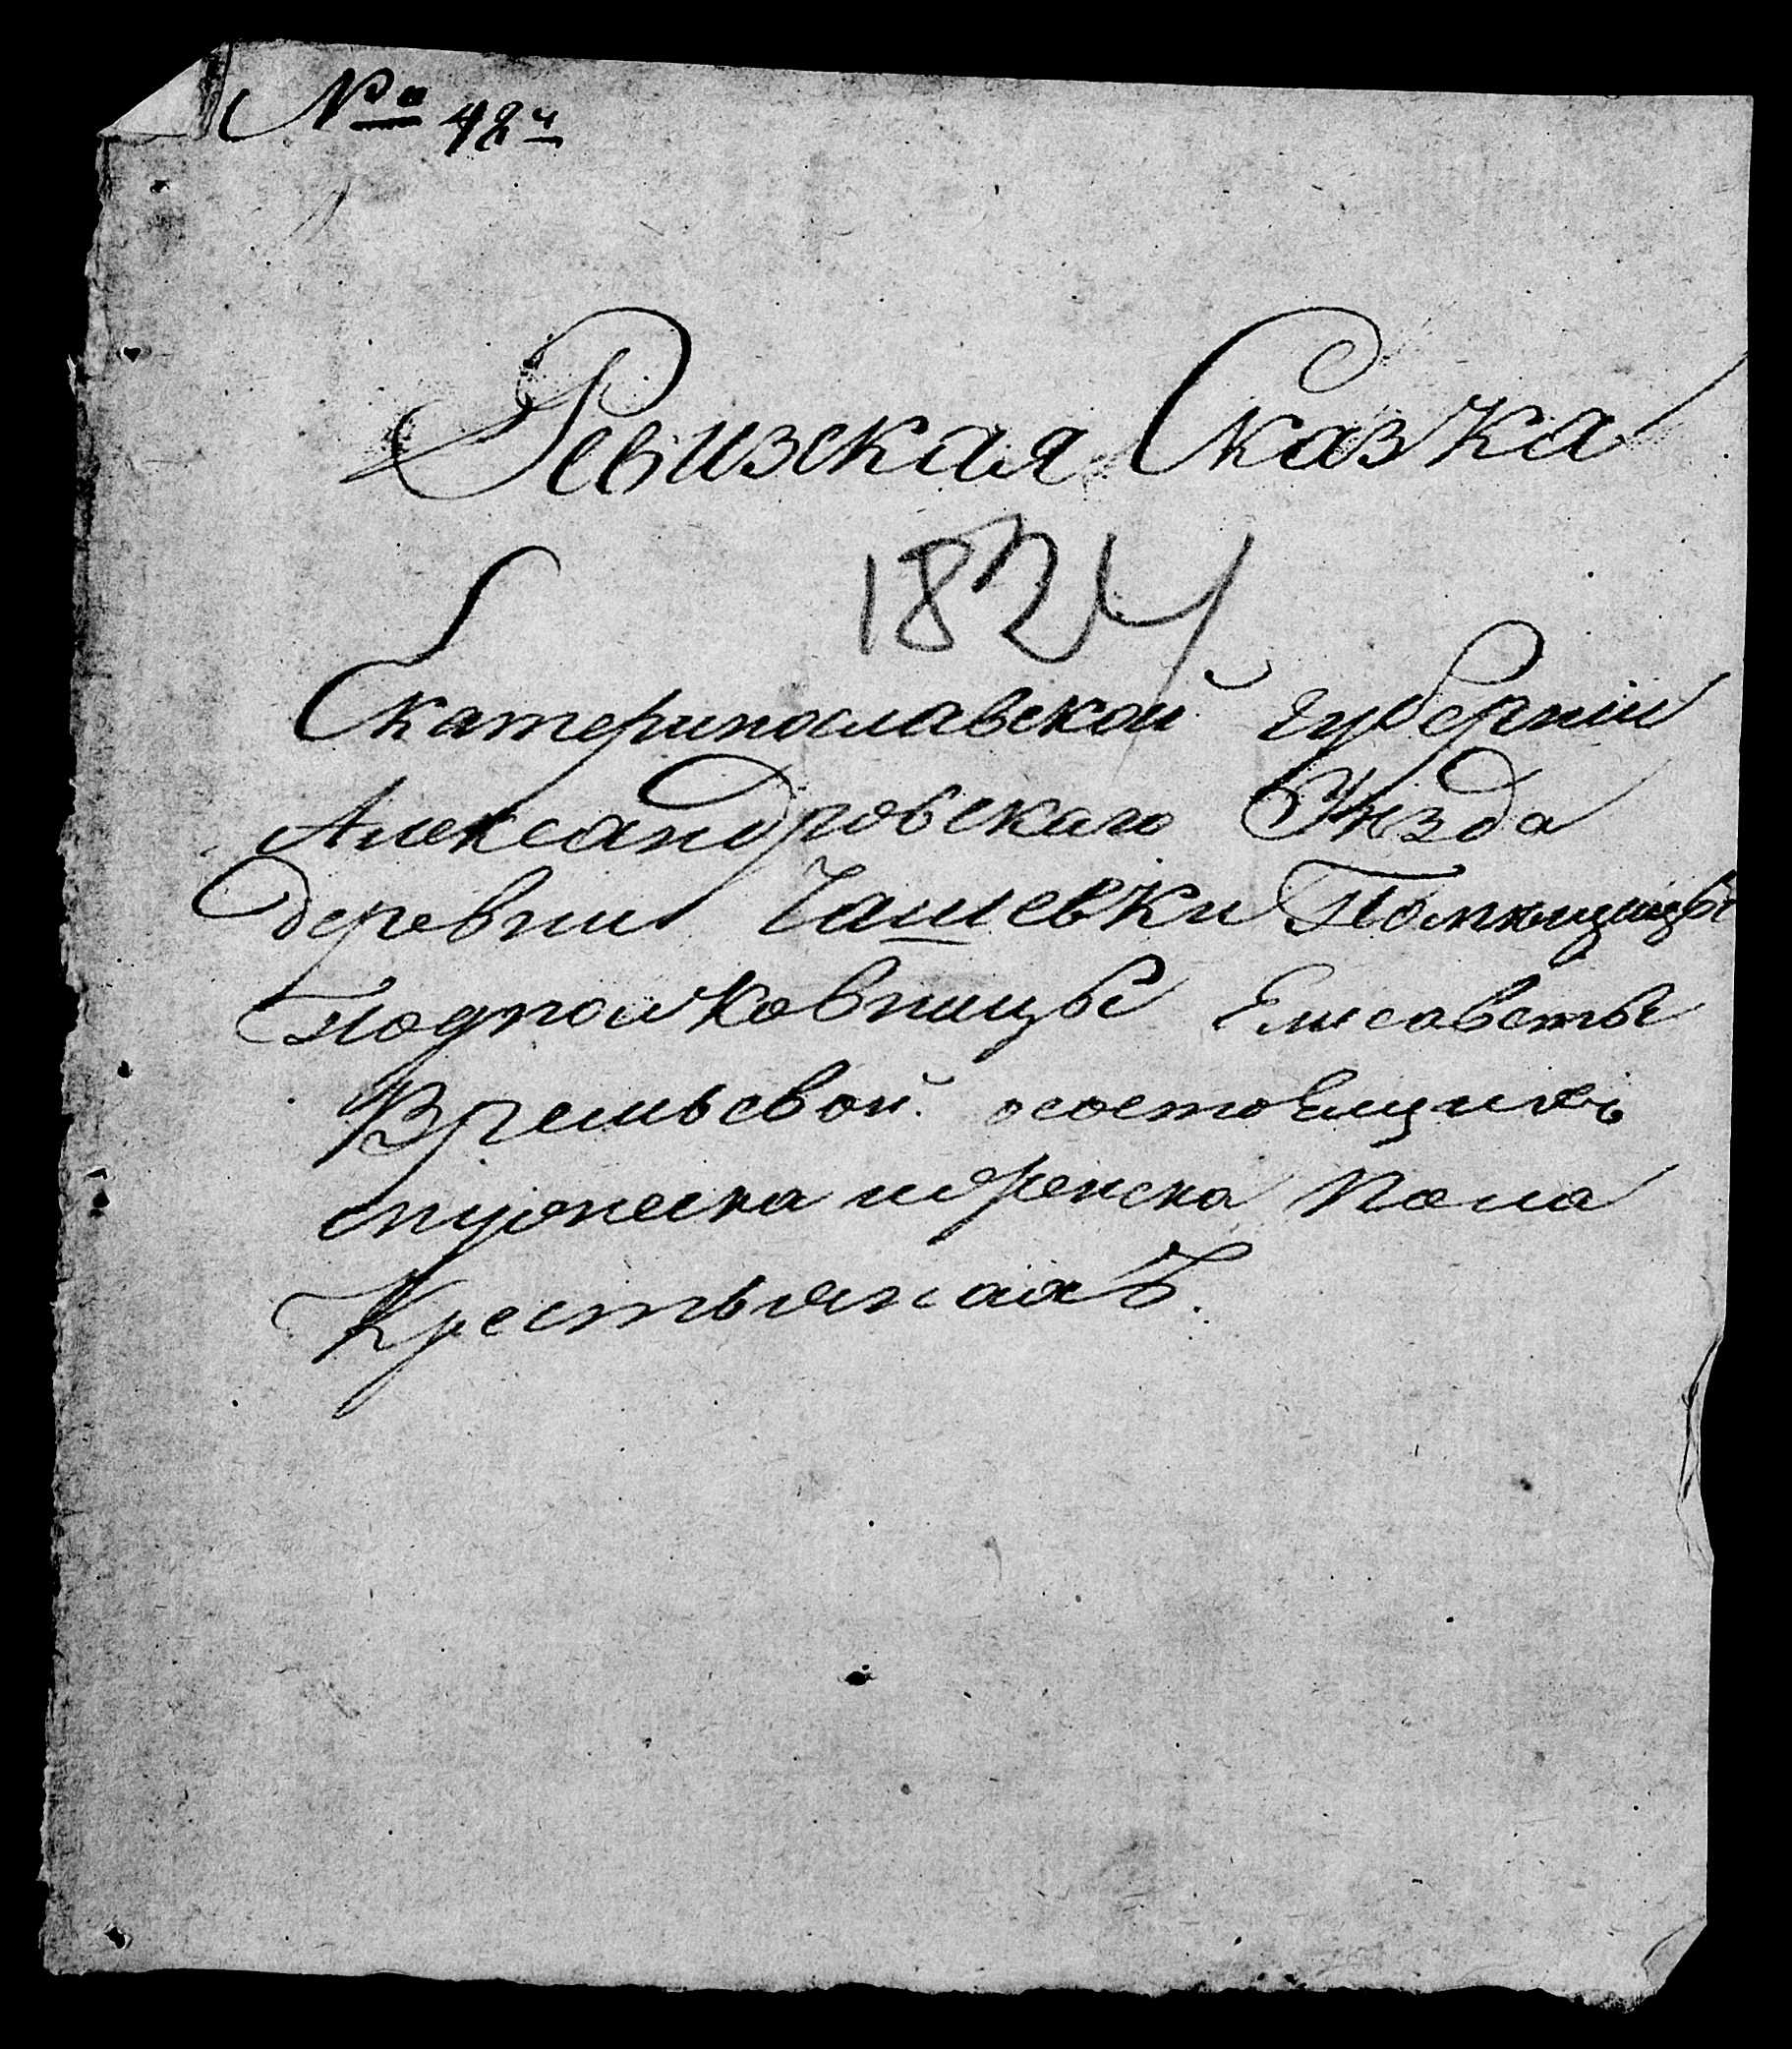 № 42й
Ревизская Сказка
1824
Екатеринославской губернїи
Александровскаго Уѣзда
деревни Гашевки Помѣщицы
Подполковницы Елисаветы
Времьевой осостоящихъ
мужеска иженска пола
Крестьянахъ.